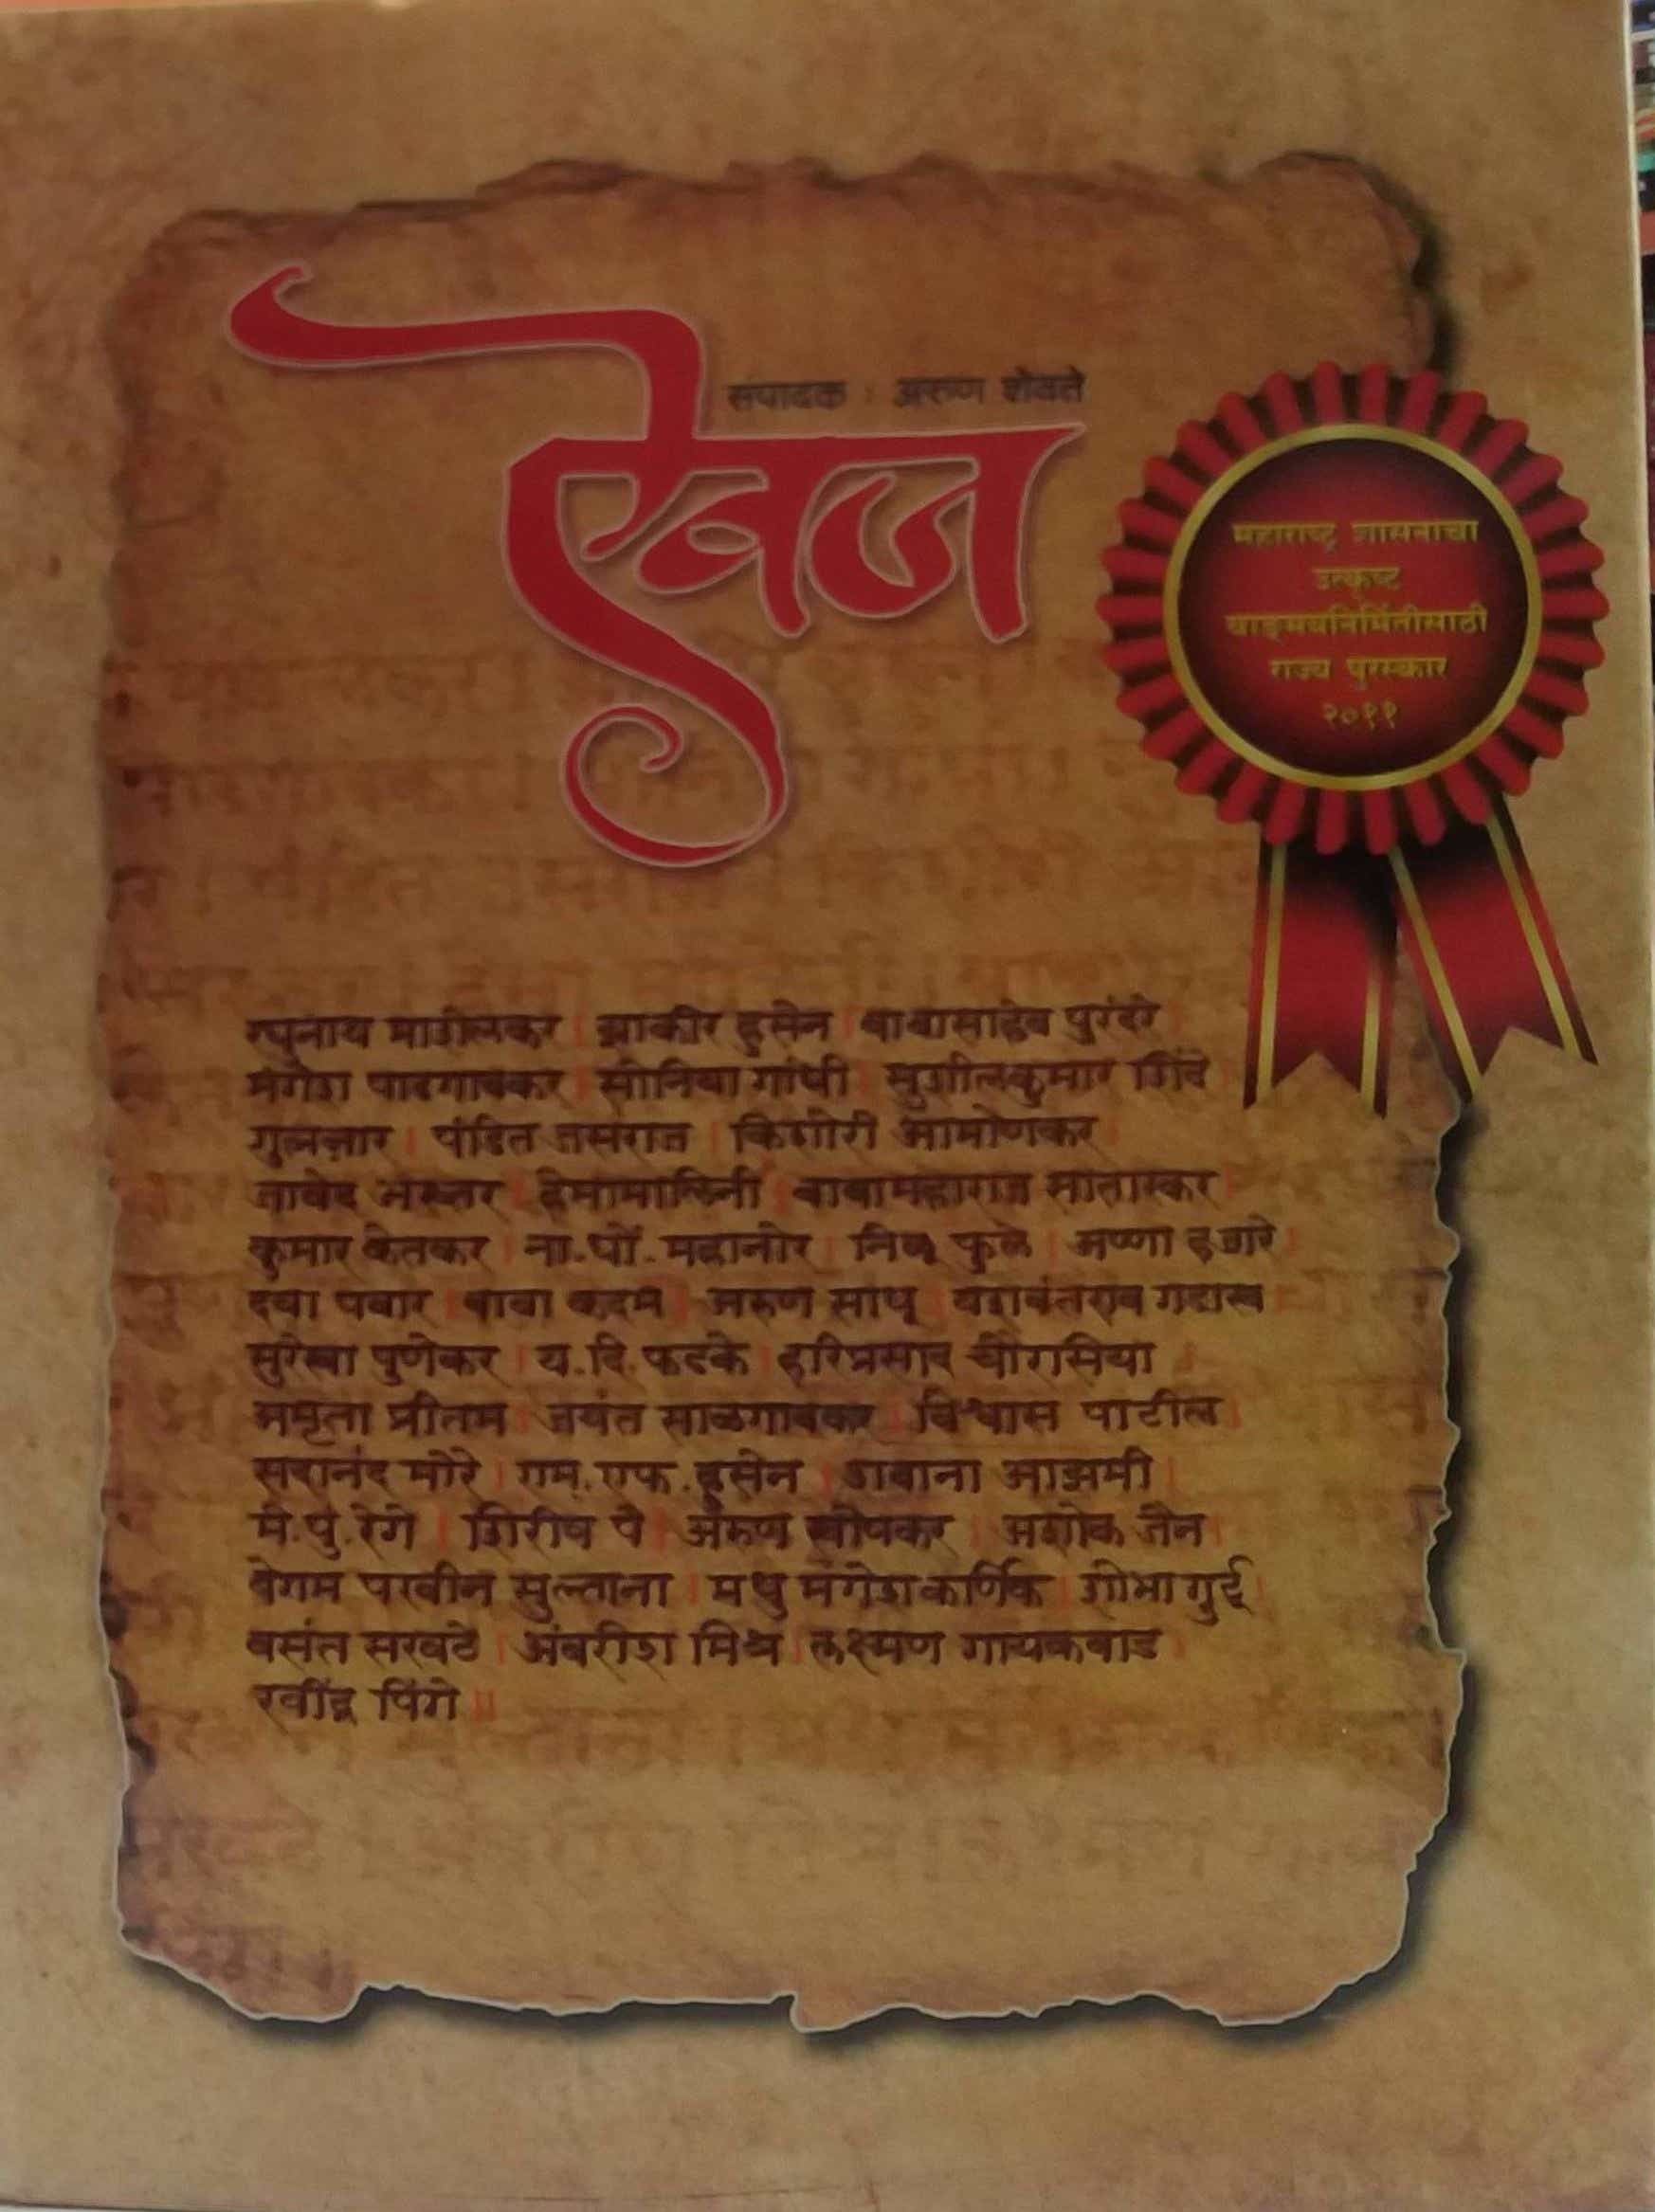 संपादक : अरुण शेवते
ऐवज
महाराष्ट्र शासनाचा
उत्कृष्ट
वाङ्मयनिर्मितीसाठी
राज्य पुरस्कार
२०११
रघुनाथ माशेलकर | झाकीर हुसेन | बाबासाहेब पुरंदरे |
मंगेश पाडगावकर | सोनिया गांधी | सुशीलकुमार शिंदे |
गुलज़ार | पंडित जसराज | किशोरी आमोणकर |
जावेद अख्तर | हेमामालिनी | बाबामहाराज सातारकर |
कुमार केतकर | ना.धों. महानोर | निळू फुले | अण्णा हजारे |
दया पवार | बाबा कदम | अरुण साधू | यशवंतराव गडाख |
सुरेखा पुणेकर | य.दि. फडके | हरिप्रसाद चौरासिया |
अमृता प्रीतम | जयंत साळगावकर | विश्वास पाटील |
सदानंद मोरे | एम. एफ. हुसेन | शबाना आझमी |
मे.पुं. रेगे | शिरीष पै | अरुण खोपकर | अशोक जैन |
बेगम परवीन सुल्ताना | मधु मंगेश कर्णिक | शोभा गुर्टू |
वसंत सरवटे | अंबरीश मिश्र | लक्ष्मण गायकवाड |
रवींद्र पिंगे ||